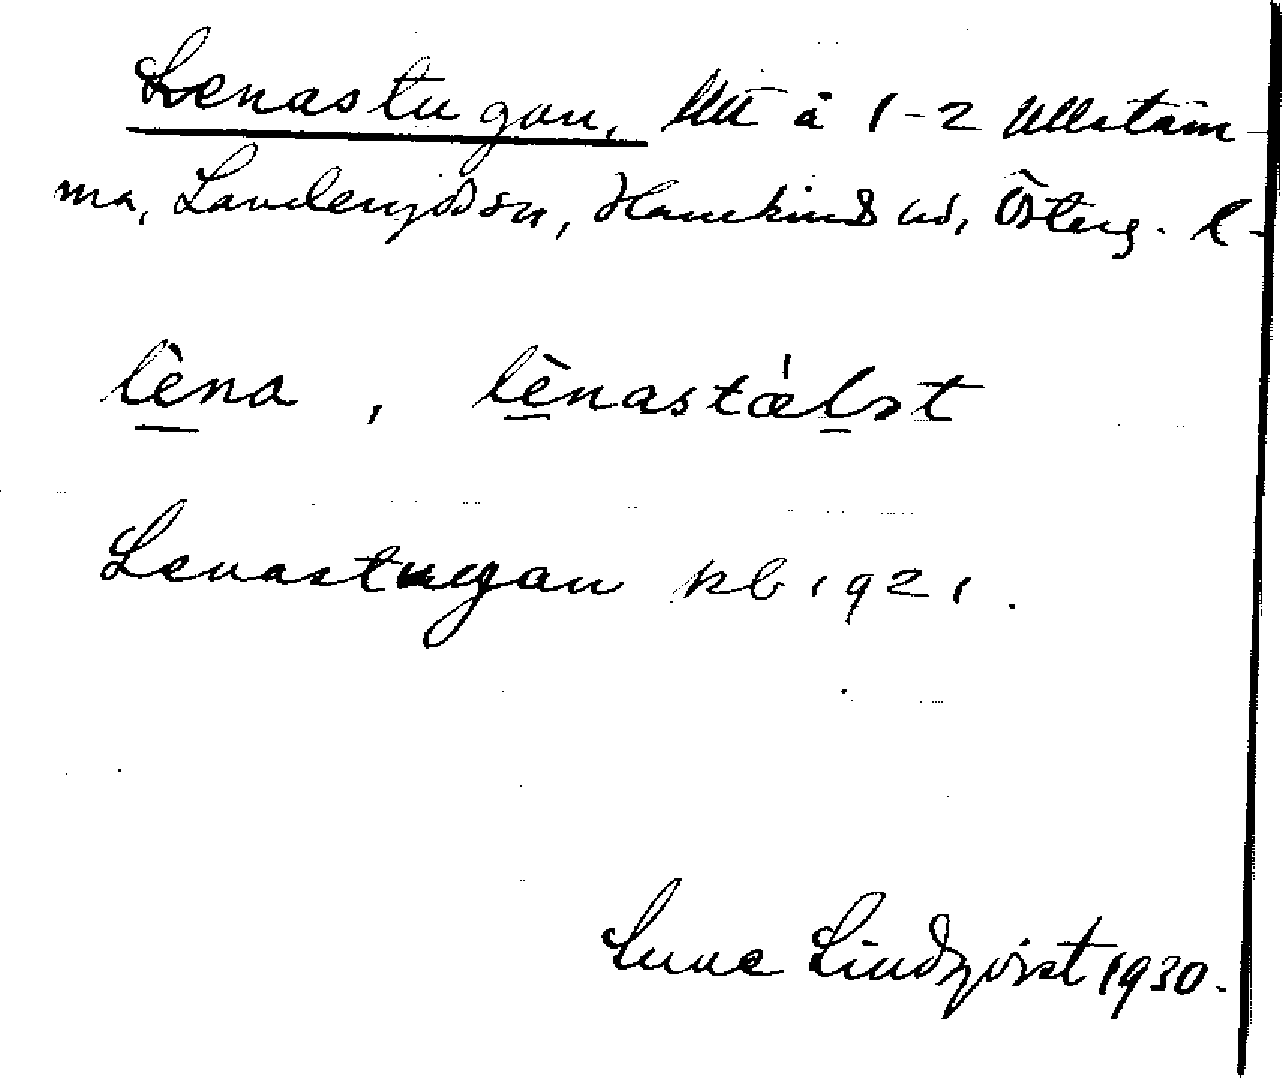 Lenastugan, lht å 1-2 Ullstäm-
ma, Landerydssn, Hanekinds hd, Österg. l.
lèna, lènastælst
Lenastugan kb 1921.
Sune Lindqvist 1930.